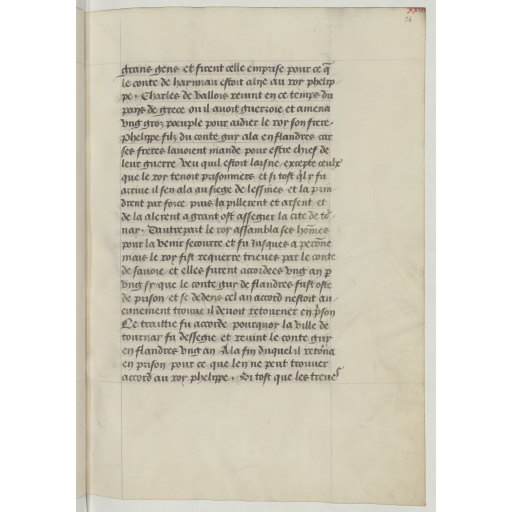 24
grans gens et firent celle emprise pour ce q̃
le conte de haynau estoit alye au roy phelip
pe. Charles de vallois revint en ce temps du
pays de grece ou il avoit guerroie et amena
ung groz poeuple pour aidier le roy son frere.
Phelippe filz du conte guy ala en flandres car
ses freres lavoient mande pour estre chief de
leur guerre veu quil estoit laisne excepte ceulx
que le roy tenoit prisonniers et si tost q̃l y fu
arrive il sen ala au siege de lessines et la prin
drent par force puis la pillerent et arsent et
de la alerent a grant ost assegier la cite de to
nay. Dautre part le roy assambla ses hom̃es
pour la venir secourre et fu jusques a peron̄e
mais le roy fist requerre trieves par le conte
de savoie et elles furent accordees ung an p
ung sy que le conte guy de flandres fust oste
de prison et se dedens cel an accord nestoit au
cunement trouve il devoit retourner en p̃son
Ce traittie fu accorde pourquoy la ville de
tournay fu dessegie et revint le conte guy
en flandres ung an A la fin duquel il reto͂na
en prison pour ce que len ne peut trouver
accord au roy phelippe. Si tost que les treues